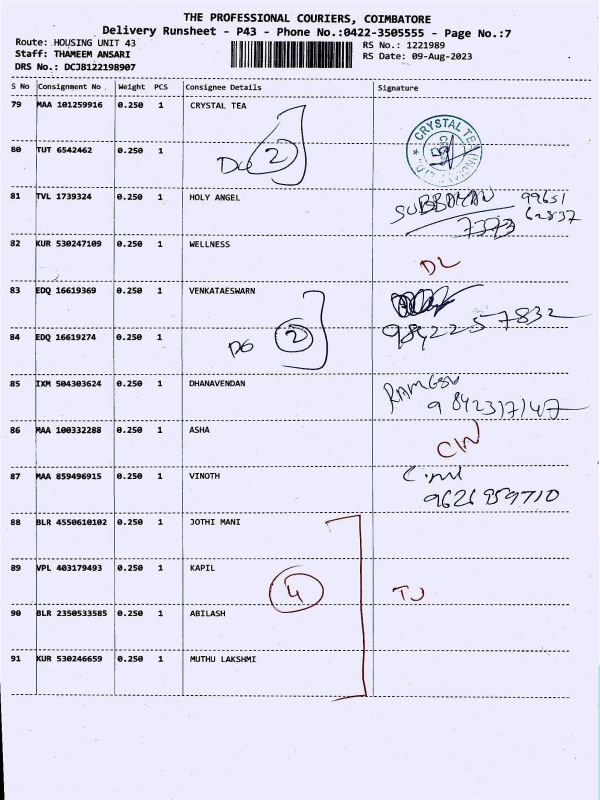 THE PROFESSIONAL COURIERS, COIMBATORE
Delivery Runsheet - P43 - Phone No.:0422-3505555 - Page No.:7
Route: HOUSING UNIT 43 RS No.: 1221989
Staff: THAMEEM ANSARI RS Date: 09-Aug-2023
DRS No.: DCJB122198907
S No Consignment No Weight PCS Consignee Details Signature
79 MAA 101259916 0.250 1 CRYSTAL TEA
CRYSTAL TEA
80 TUT 6542462 0.250 1
DO 2
81 TVL 1739324 0.250 1 HOLY ANGEL
99651
62837
7373
82 KUR 530247109 0.250 1 WELLNESS
DL
83 EDQ 16619369 0.250 1 VENKATAESWARN
9842257832
84 EDQ 16619274 0.250 1
DO 2
85 IXM 504303624 0.250 1 DHANAVENDAN
9842317147
86 MAA 100332288 0.250 1 ASHA
CIN
87 MAA 859496915 0.250 1 VINOTH
9626959710
88 BLR 4550610102 0.250 1 JOTHI MANI
89 VPL 403179493 0.250 1 KAPIL
4
90 BLR 2350533585 0.250 1 ABILASH
91 KUR 530246659 0.250 1 MUTHU LAKSHMI